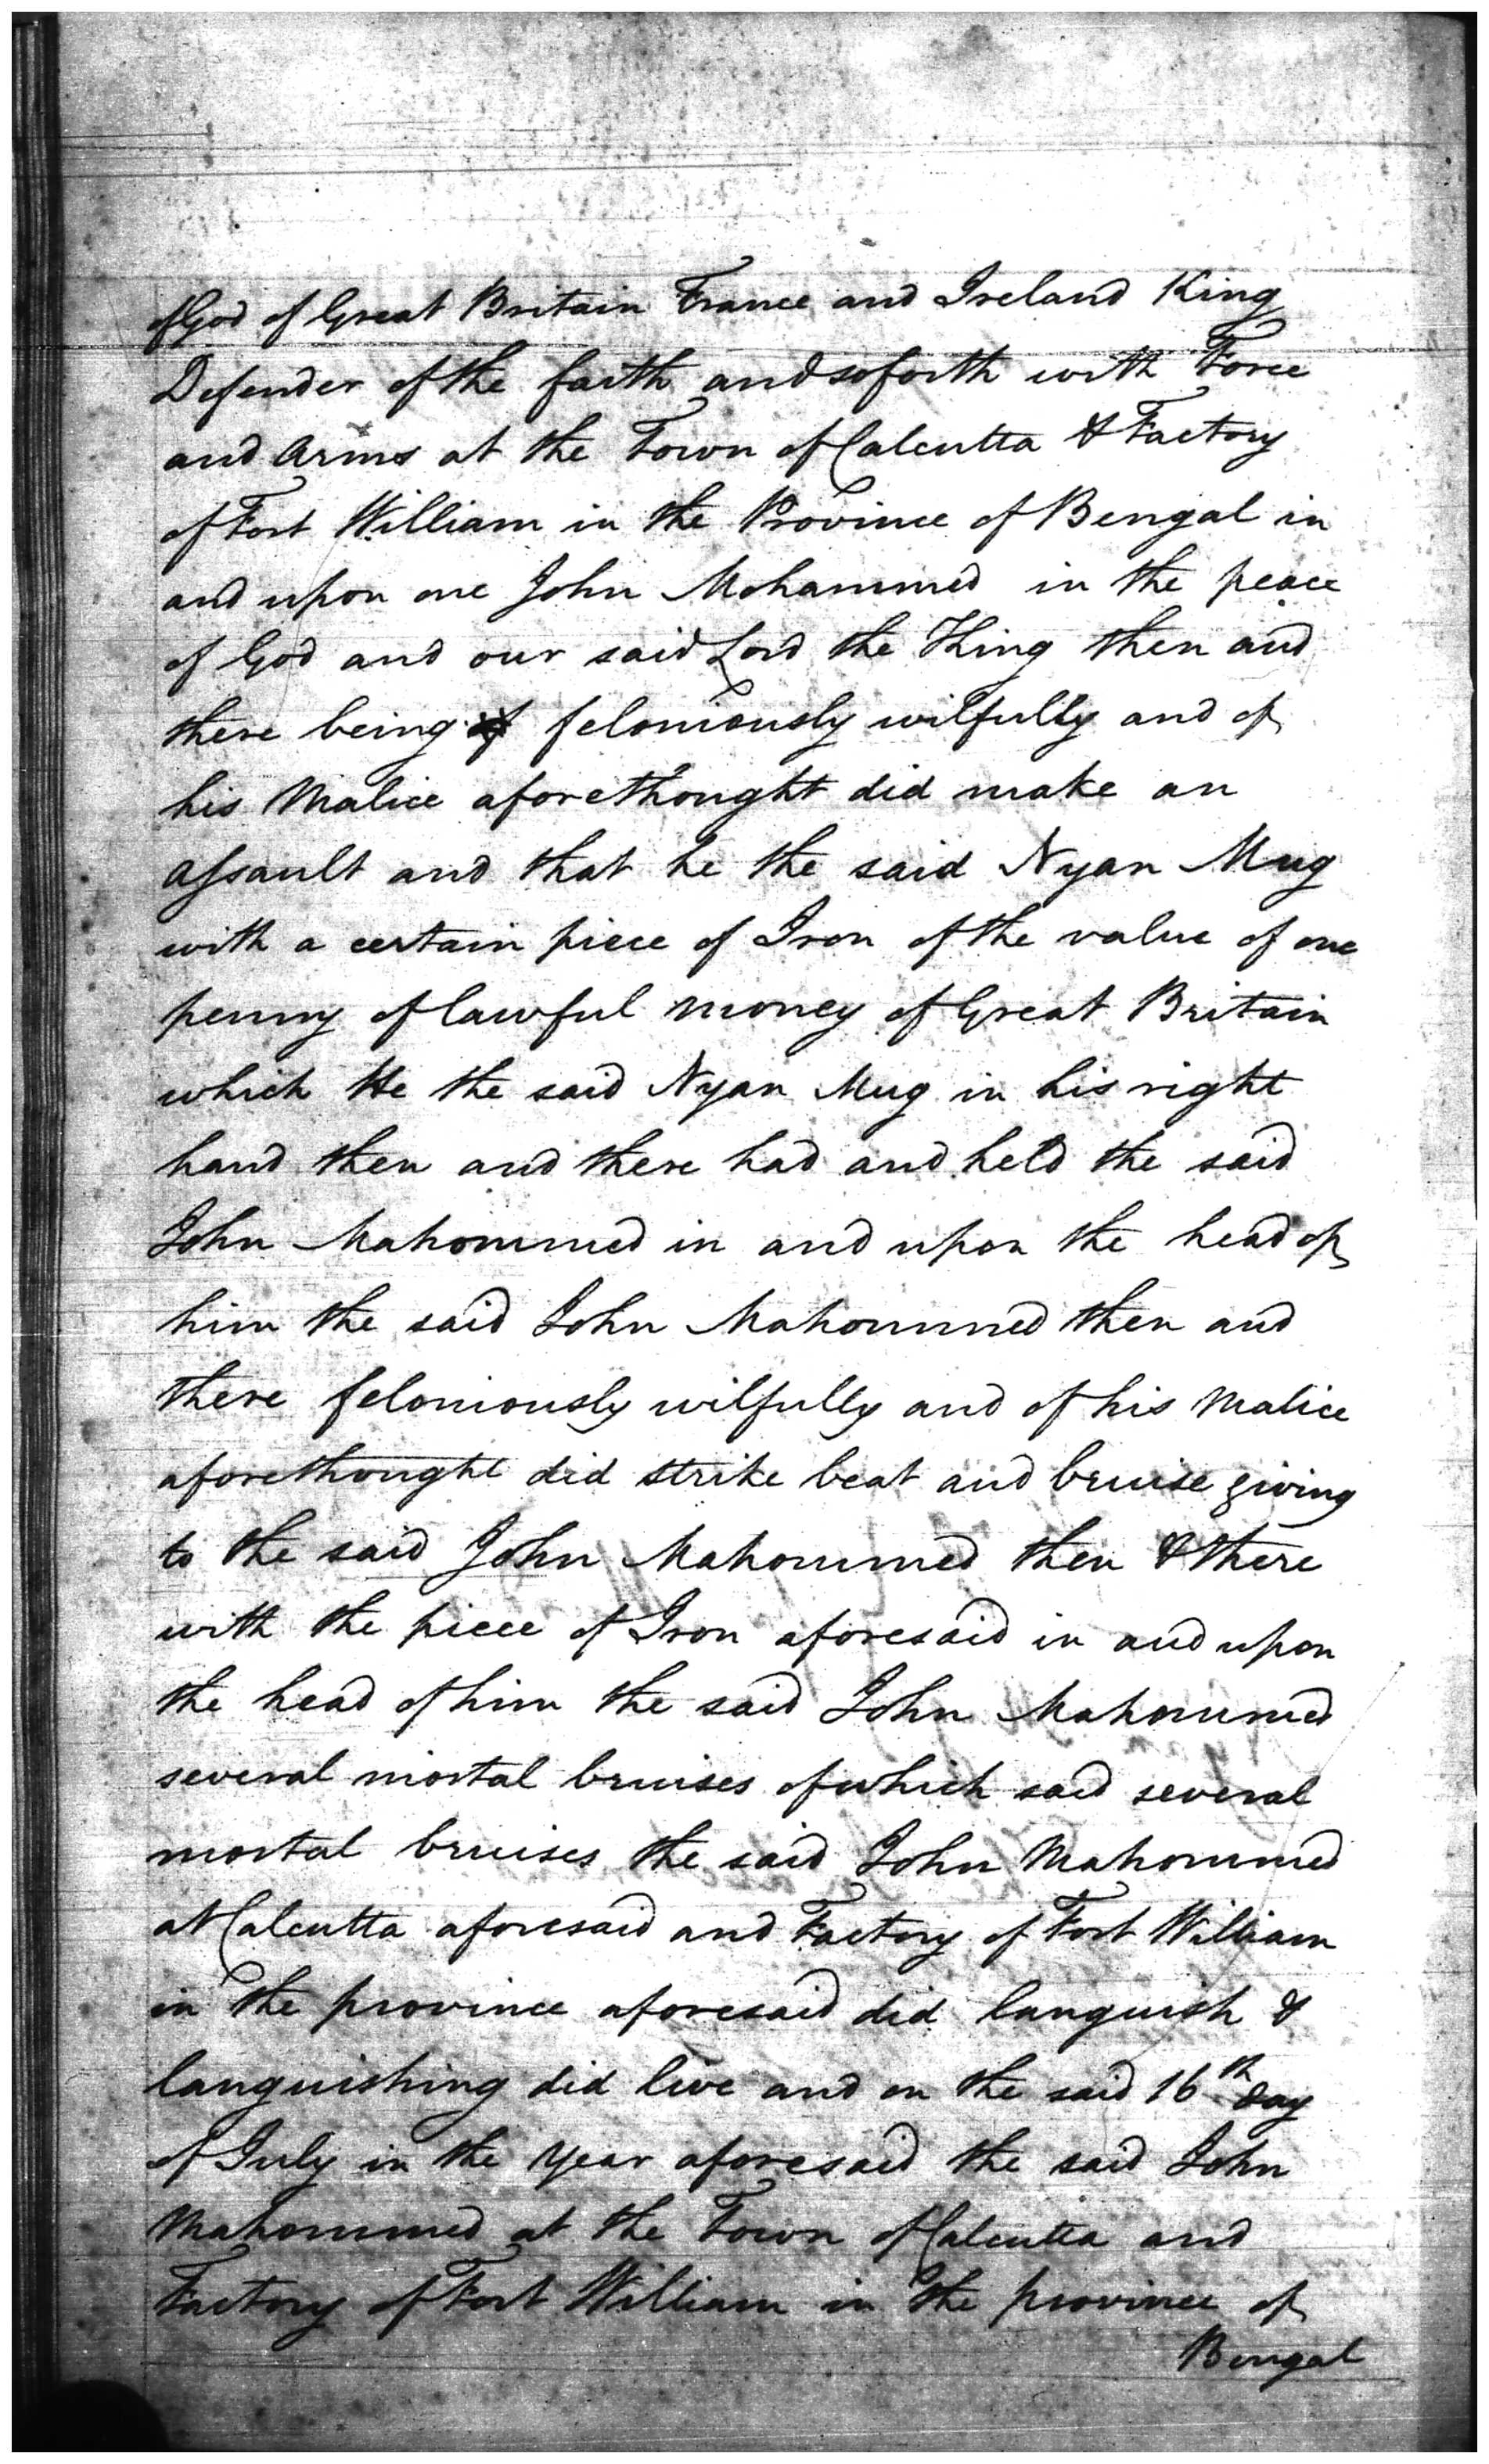 of God of Great Britain France and Ireland King
Defender of the faith and soforth with Force
and Arms at the Town of Calcutta & Factory
of Fort William in the Province of Bengal in
and upon one John Mohammed in the peace
of God and our said Lord the King then and
there being feloniously wilfully and of
his Malice aforethought did make an
assault and that he the said Nyan Mug
with a certain piece of Iron of the value of one
penny of lawful money of Great Britain
which He the said Nyan Mug in his right
hand then and there had and held the said
John Mahommed in and upon the head of
him the said John Mahommed then and
there feloniously wilfully and of his Malice
aforethought did strike beat and bruise giving
to the said John Mahommed then & there
with the piece of Iron aforesaid in and upon
the head of him the said John Mahommed
several mortal bruises of which said several
mortal bruises the said John Mahommed
at Calcutta aforesaid and Factory of Fort William
in the province aforesaid did languish &
languishing did live and on the said 16th day
of July in the Year aforesaid the said John
Mahommed at the Town of Calcutta and
Factory of Fort William in the province of
Bengal